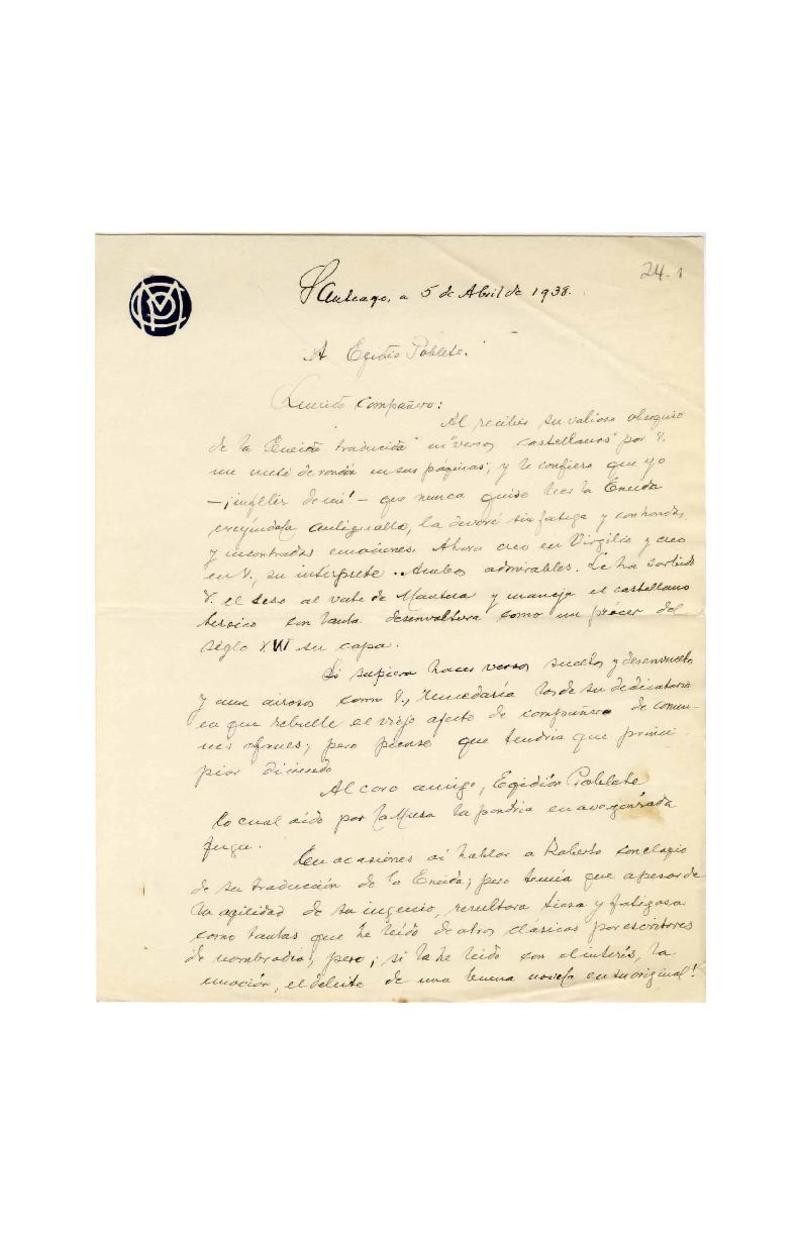 24.1
Santiago, a 5 de Abril de 1938.
A Egidio Poblete.
Querido Compañero:
Al recibir su valioso obsequio
de la Eneida traducida "en versos castellanos" por V.
me metí de rondón en sus páginas; y le confieso que yo
—¡infeliz de mí!— que nunca quise leer la Eneida
creyéndola antigualla, la devoré sin fatiga y con hondas
y encontradas emociones. Ahora creo en Virgilio y creo
en V., su intérprete.. Ambos admirables. Le ha sorbido
V. el seso al vate de Mantua y maneja el castellano
heroico con tanta desenvoltura como un prócer del
siglo XVI su capa.
Si supiera hacer versos sueltos y desenvueltos
y aun airosos como V., remedaría los de su dedicatoria
en que rebulle el viejo afecto de compañero de comu-
nes afanes; pero pienso que tendría que princi-
piar diciendo
Al caro amigo, Egidión Poblete
lo cual oído por la Musa la pondría en avergonzada
fuga.
En ocasiones oí hablar a Roberto con elogio
de su traducción de la Eneida; pero temía que apesar de
la agilidad de su ingenio, resultara tiesa y fatigosa
como tantas que he leído de otros clásicos por escritores
de nombradía; pero ¡si la he leído con el interés, la
emoción, el deleite de una buena novela en su original!